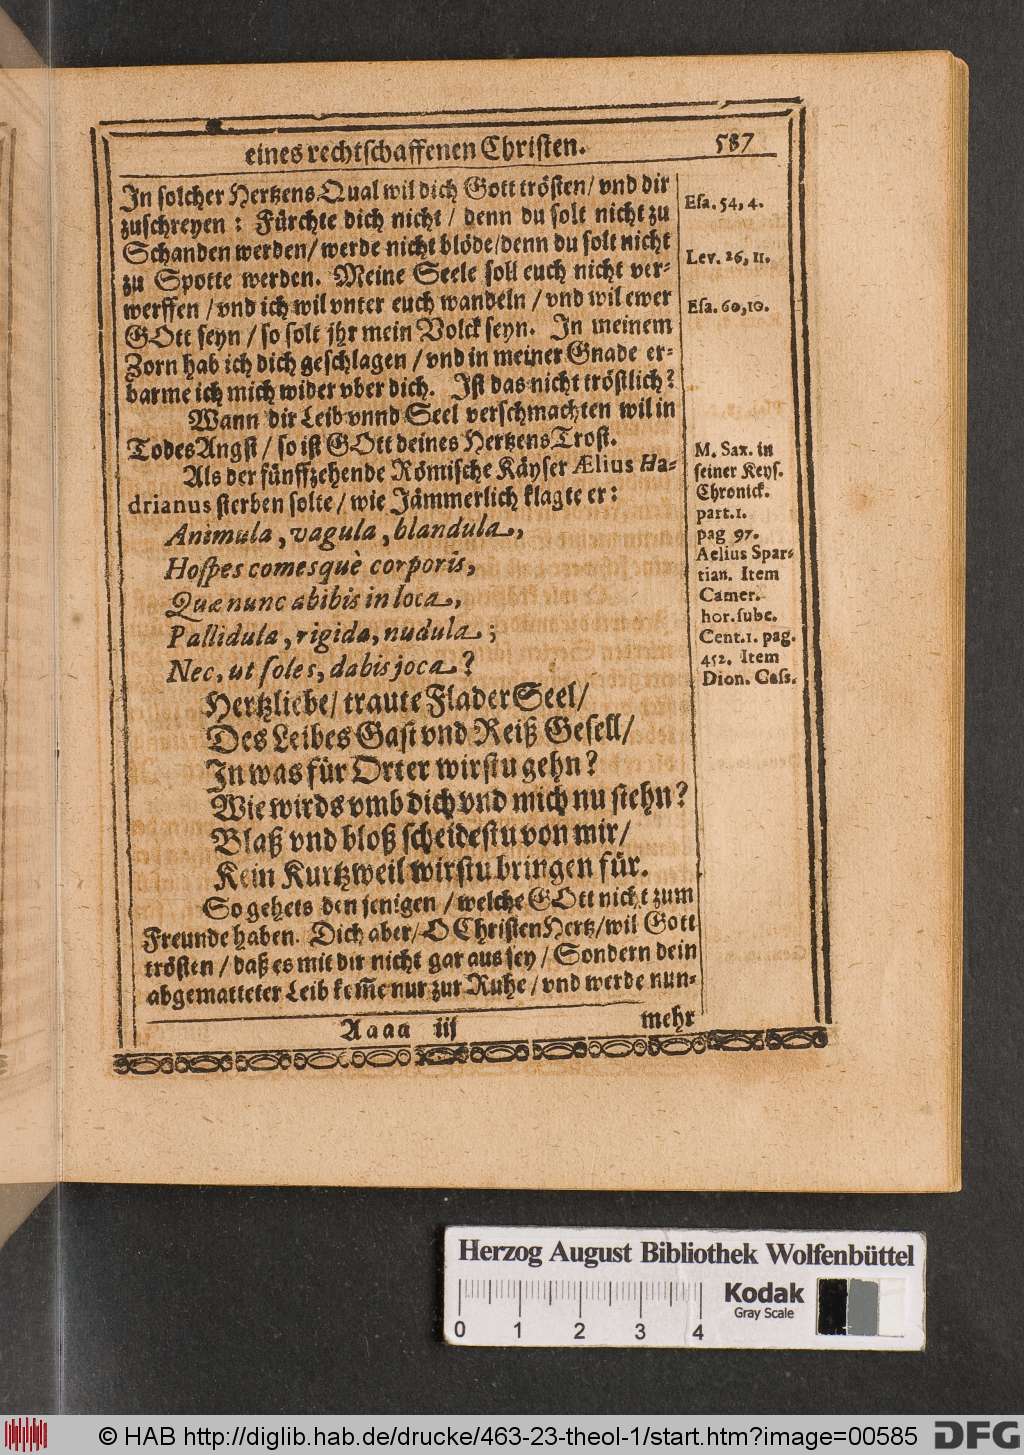 eines rechtschaffenen Christen. 587
In solcher HertzensQual wil dich Gott trösten / vnd dir
zuschreyen: Fürchte dich nicht / denn du solt nicht zu
Schanden werden / werde nicht blöde / denn du solt nicht
zu Spotte werden. Meine Seele soll euch nicht ver-
werffen / vnd ich wil vnter euch wandeln / vnd wil ewer
GOtt seyn / so solt jhr mein Volck seyn. In meinem
Zorn hab ich dich geschlagen / vnd in meiner Gnade er-
barme ich mich wider vber dich. Ist das nicht tröstlich?
Wann dir Leib vnnd Seel verschmachten wil in
TodesAngst / so ist GOtt deines HertzensTrost.
Als der fünffzehende Römische Käyser Ælius Ha-
drianus sterben solte / wie Jämmerlich klagte er:
Animula, vagula, blandula,
Hospes comesquè corporis,
Quæ nunc abibis in loca,
Pallidula, rigida, nudula;
Nec, ut soles, dabis joca?
Hertzliebe / traute Flader Seel /
Des Leibes Gast vnd Reiß Gesell /
In was für Orter wirstu gehn?
Wie wirds vmb dich vnd mich nu stehn?
Blaß vnd bloß scheidestu von mir /
Kein Kurtzweil wirstu bringen für.
So gehets den jenigen / welche GOtt nicht zum
Freunde haben. Dich aber / O ChristenHertz / wil Gott
trösten / daß es mit dir nicht gar aus sey / Sondern dein
abgematteter Leib kom̃e nur zur Ruhe / vnd werde nun-
Aaaa iij mehr
Esa. 54, 4.
Lev. 26, 11.
Esa. 60, 10.
M. Sax. in
seiner Keys.
Chronick.
part. 1.
pag 97.
Aelius Spar-
tian. Item
Camer.
hor. subc.
Cent. 1. pag.
452. Item
Dion. Cass.
Herzog August Bibliothek Wolfenbüttel
0 1 2 3 4
Kodak
Gray Scale
© HAB http://diglib.hab.de/drucke/463-23-theol-1/start.htm?image=00585
DFG